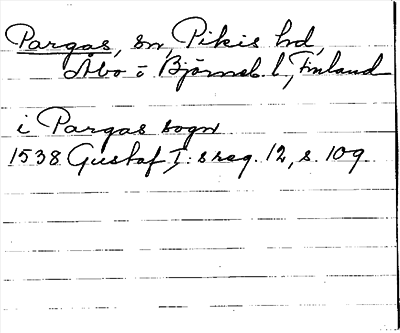 Pargas, sn, Pikis hd,
Åbo o Björneb. l, Finland
i Pargas sogn
1538 Gustaf I: s reg. 12, s. 109